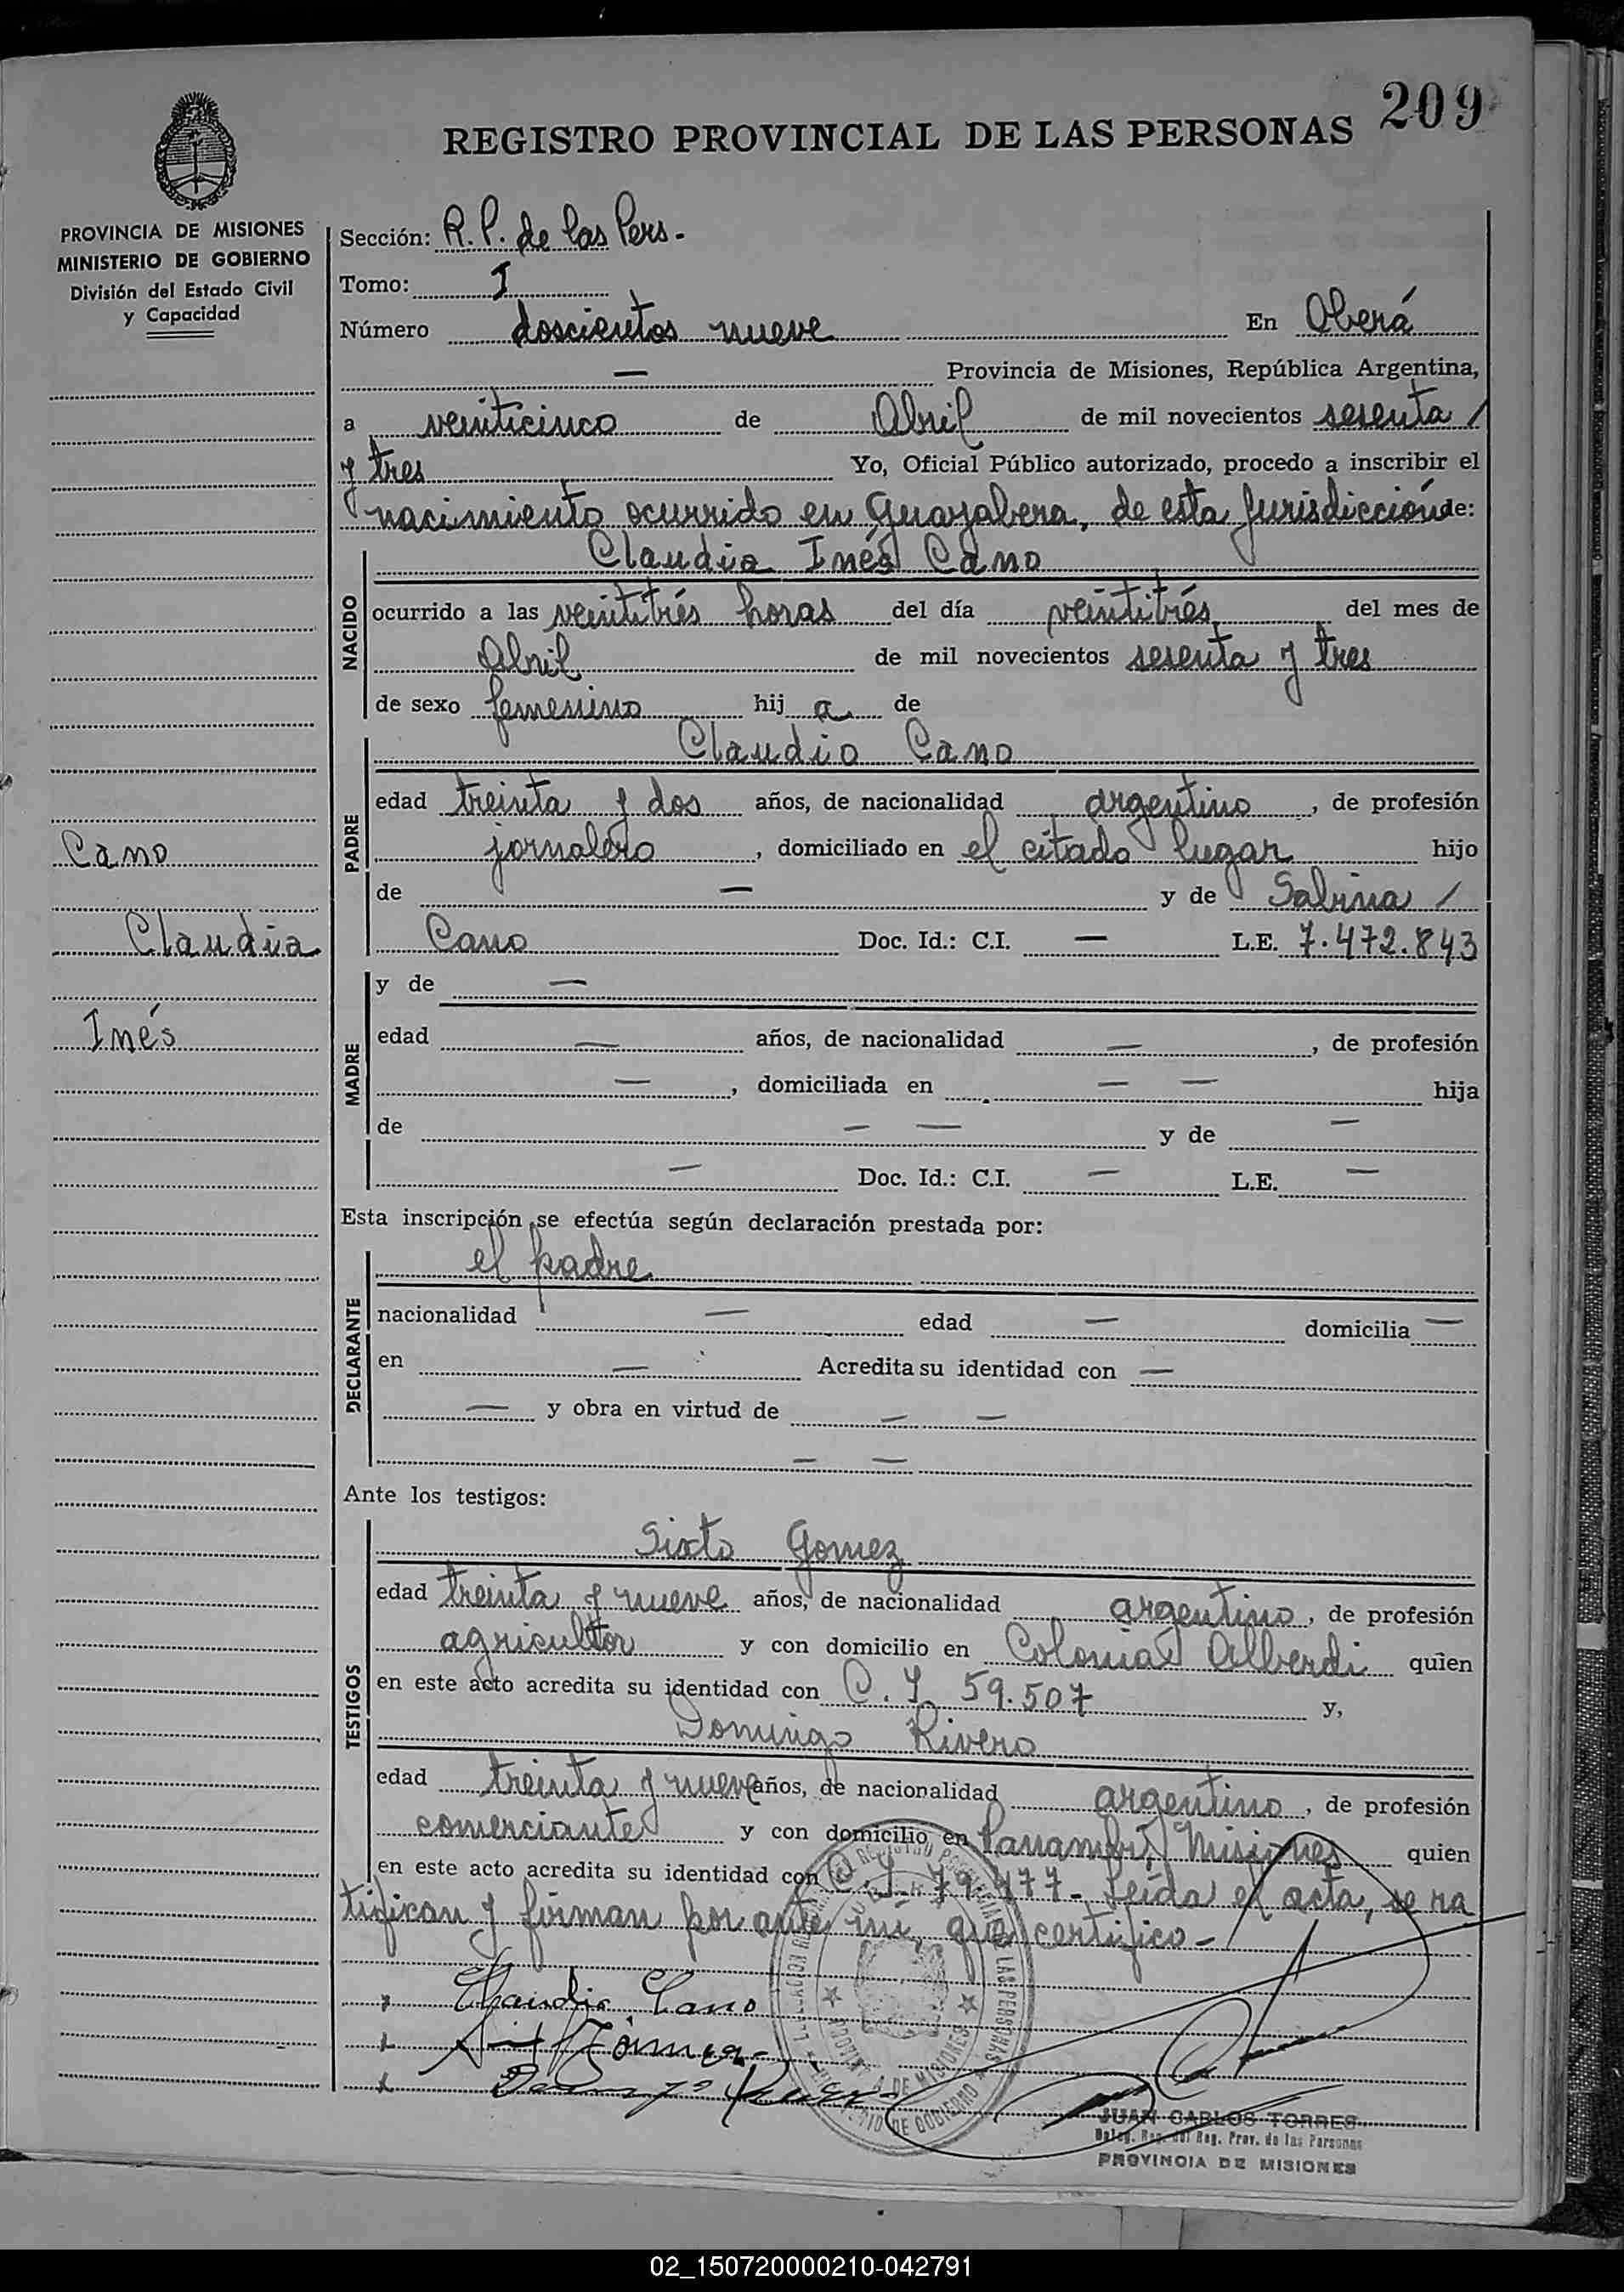 209
REGISTRO PROVINCIAL DE LAS PERSONAS
PROVINCIA DE MISIONES
MINISTERIO DE GOBIERNO
División del Estado Civil
y Capacidad
Sección: R.P. de las Pers.-
Tomo: I
Número doscientos nueve En Oberá
— Provincia de Misiones, República Argentina,
a veinticinco de Abril de mil novecientos sesenta /
y tres Yo, Oficial Público autorizado, procedo a inscribir el
nacimiento ocurrido en Guayabera, de esta Jurisdicción de:
NACIDO
Claudia Inés Cano
ocurrido a las veintitrés horas del día veintitrés del mes de
Abril de mil novecientos sesenta y tres
de sexo femenino hij a de
PADRE
Claudio Cano
edad treinta y dos años, de nacionalidad argentino, de profesión
jornalero, domiciliado en el citado lugar hijo
de — y de Sabina /
Cano Doc. Id.: C.I. — L.E. 7.472.843
Cano
Claudia
Inés
MADRE
y de —
edad — años, de nacionalidad —, de profesión
—, domiciliada en — — hija
de — — y de —
— Doc. Id.: C.I. — L.E. —
Esta inscripción se efectúa según declaración prestada por:
DECLARANTE
el padre
nacionalidad — edad — domicilia —
en — Acredita su identidad con —
— y obra en virtud de — —
— —
Ante los testigos:
TESTIGOS
Sixto Gomez
edad treinta y nueve años, de nacionalidad argentino, de profesión
agricultor y con domicilio en Colonia Alberdi quien
en este acto acredita su identidad con C.I. 59.507 y,
Domingo Rivero
edad treinta y nueve años, de nacionalidad argentino, de profesión
comerciante y con domicilio en Panambí, Misiones quien
en este acto acredita su identidad con C.I. 79.477- Leída el acta, se ra
tifican y firman por ante mí, que certifico-
x Claudio Cano
x Sixto Gómez
x Domingo Rivero
JUAN CARLOS TORRES
Deleg. Reg. del Reg. Prov. de las Personas
PROVINCIA DE MISIONES
02_150720000210-042791